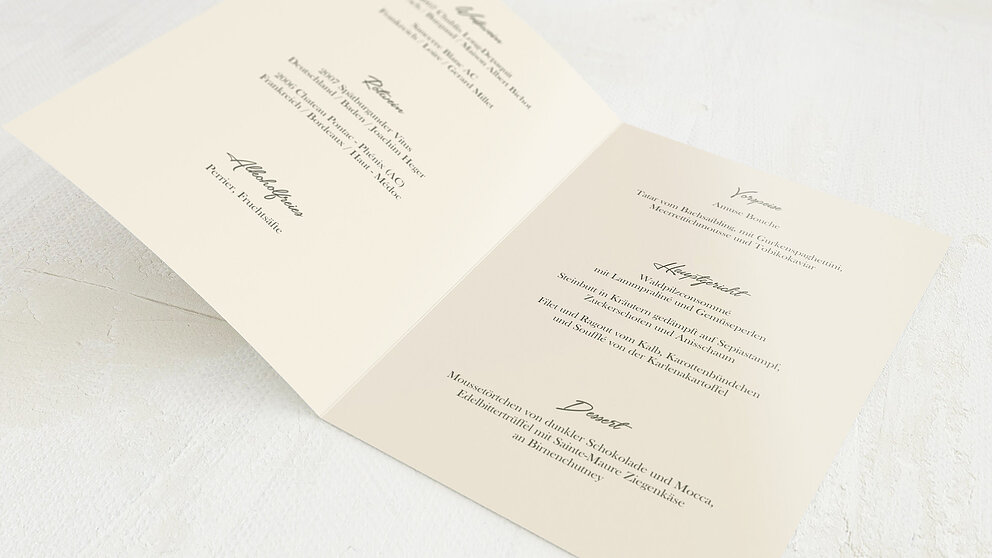 Weisswein
2007 Chablis Long-Depaquit
Burgund / Maison Albert Bichot
Sancerre Blanc AC
Frankreich / Loire / Gerard Millet
Rotwein
2007 Spätburgunder Vitus
Deutschland / Baden / Joachim Heger
2006 Chateau Pontac - Phénix (AC)
Frankreich / Bordeaux / Haut - Médoc
Alkoholfreies
Perrier, Fruchtsäfte
Vorspeise
Amuse Bouche
Tatar vom Bachsaibling, mit Gurkenspaghettini,
Meerrettichmousse und Tobikokaviar
Hauptgericht
Waldpilzconsommé
mit Lammpraline und Gemüseperlen
Steinbutt in Kräutern gedämpft auf Sepiastampf,
Zuckerschoten und Anisschaum
Filet und Ragout vom Kalb, Karottenbündchen
und Soufflé von der Karlenakartoffel
Dessert
Moussetörtchen von dunkler Schokolade und Mocca,
Edelbittertrüffel mit Sainte-Maure Ziegenkäse
an Birnenchutney